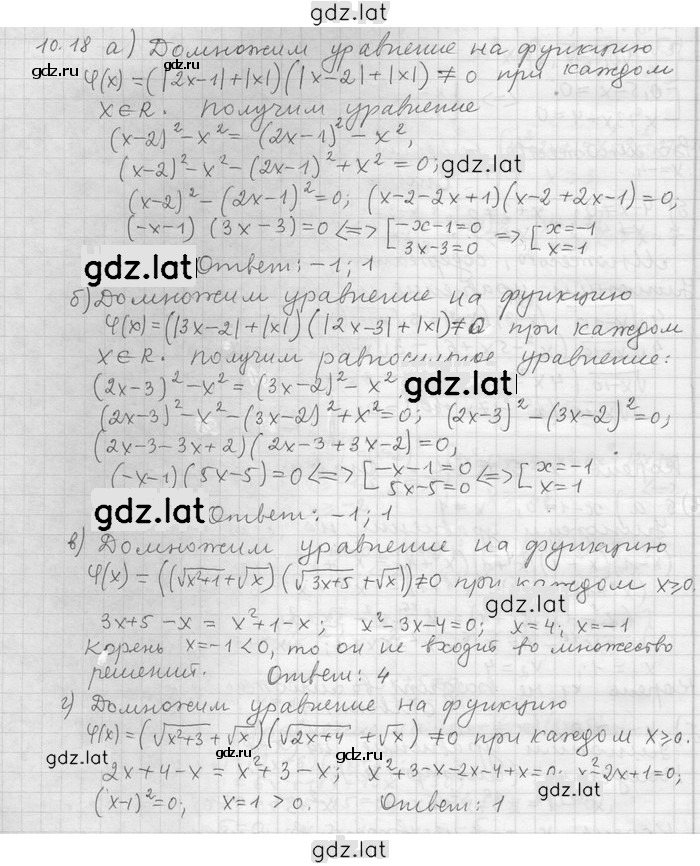 gdz.lat
10.18 а) Домножим уравнение на функцию
φ(x)=(|2x-1|+|x|)(|x-2|+|x|)≠0 при каждом
gdz.lat
gdz.lat
x∈R. Получим уравнение
(x-2)²-x²= (2x-1)²-x²,
(x-2)²-x²-(2x-1)²+x²=0; gdz.lat
(x-2)²-(2x-1)²=0; (x-2-2x+1)(x-2+2x-1)=0,
(-x-1)(3x-3)=0<=>[-x-1=0 3x-3=0 =>[x=-1 x=1
gdz.lat Ответ: -1; 1
б) Домножим уравнение на функцию
φ(x)=(|3x-2|+|x|)(|2x-3|+|x|)≠0 при каждом
gdz.lat
x∈R. Получим равносильное уравнение:
(2x-3)²-x²=(3x-2)²-x²,
gdz.lat
(2x-3)²-x²-(3x-2)²+x²=0; (2x-3)²-(3x-2)²=0;
(2x-3-3x+2)(2x-3+3x-2)=0,
(-x-1)(5x-5)=0<=>[-x-1=0 5x-5=0 <=>[x=-1 x=1
gdz.lat Ответ: -1; 1
в) Домножим уравнение на функцию
φ(x)=((√x²+1+√x)(√3x+5+√x))≠0 при каждом x≥0.
gdz.lat
3x+5-x=x²+1-x; x²-3x-4=0; x=4; x=-1
Корень x=-1<0, то он не входит во множество
решений. Ответ: 4
г) Домножим уравнение на функцию
φ(x)=(√x²+3+√x)(√2x+4+√x)≠0 при каждом x≥0.
gdz.lat
gdz.lat
2x+4-x=x²+3-x; x²+3-x-2x-4+x=0; x²-2x+1=0;
gdz.lat
(x-1)²=0; x=1>0. Ответ: 1
gdz.lat